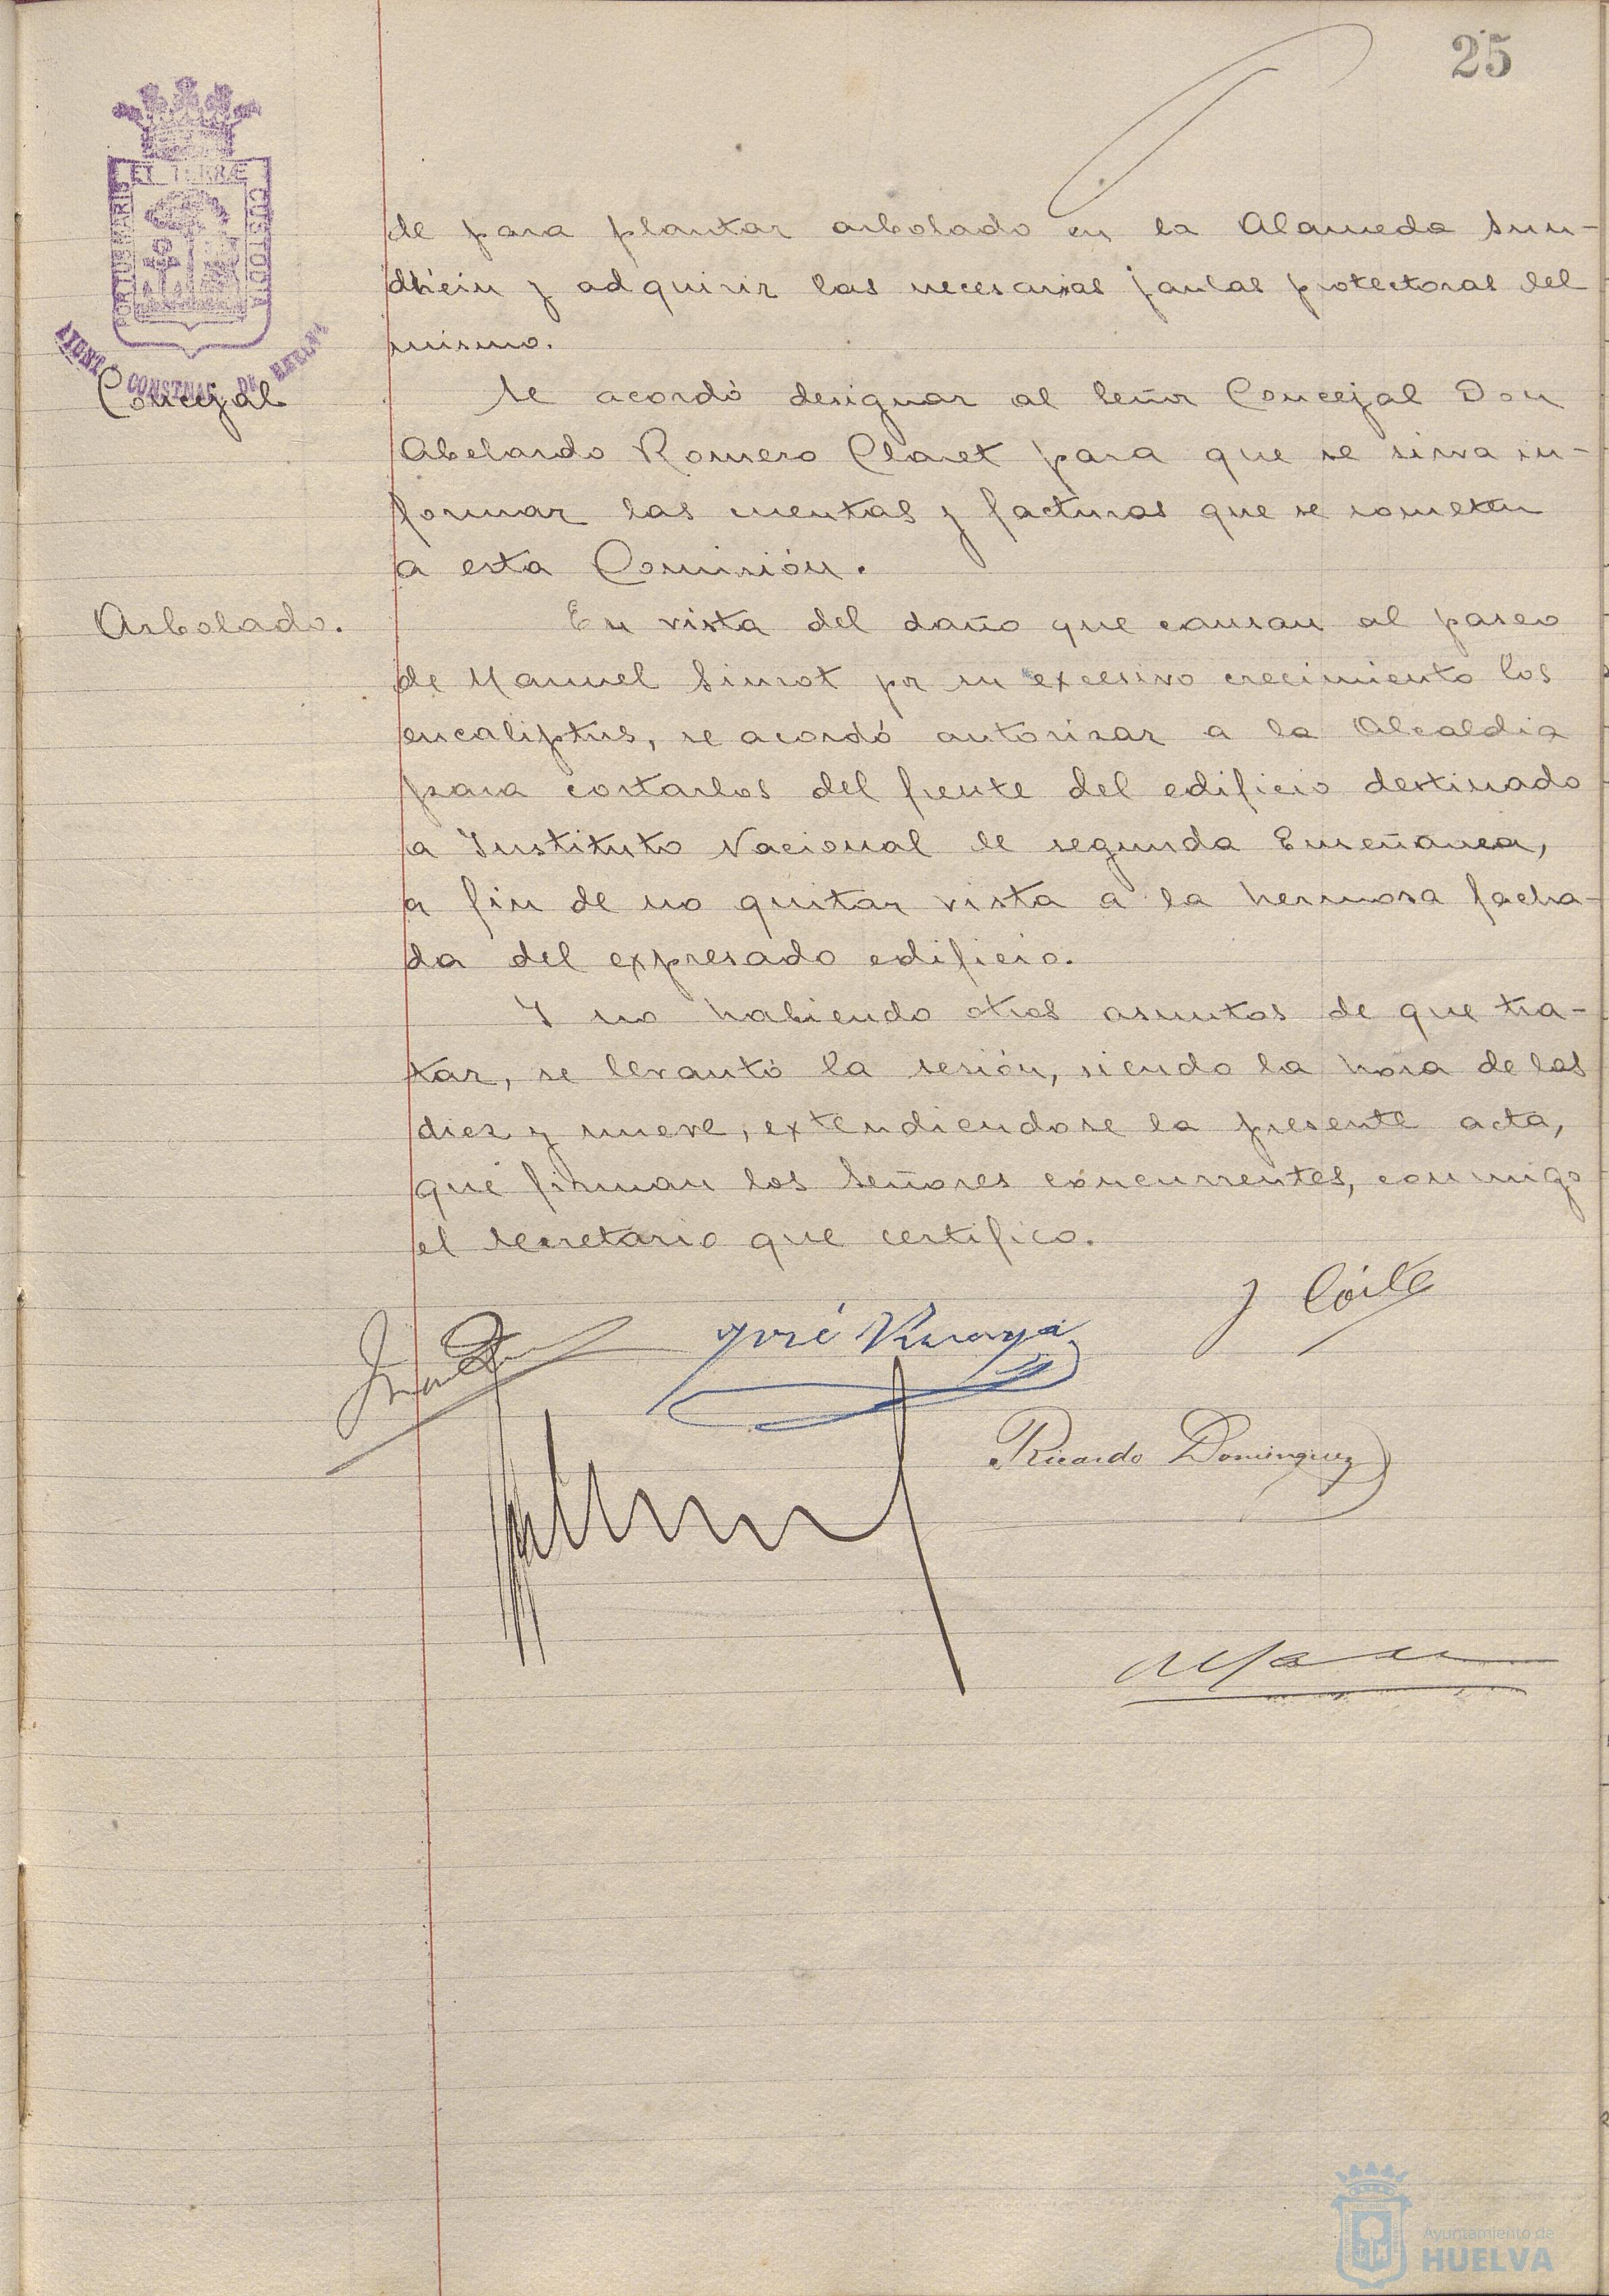 25
PORTUS MARIS
ET TERRÆ
CUSTODIA
AYUNT. CONSTNAL. DE HUELVA
de para plantar arbolado en la Alameda Sun-
dhéin y adquirir las necesarias jaulas protectoras del
mismo.
Concejal
Se acordó designar al Señor Concejal Don
Abelardo Romero Claret para que se sirva in-
formar las cuentas y facturas que se someten
a esta Comisión.
Arbolado.
En vista del daño que causan al paseo
de Manuel Siurot por su excesivo crecimiento los
eucaliptus, se acordó autorizar a la Alcaldia
para cortarlos del frente del edificio destinado
a Instituto Nacional de segunda Enseñanza,
a fin de no quitar vista a la hermosa facha-
da del expresado edificio.
Y no habiendo otros asuntos de que tra-
tar, se levantó la sesión, siendo la hora de las
diez y nueve, extendiendose la presente acta,
que firman los Señores concurrentes, conmigo
el secretario que certifico.
José
Ricardo Dominguez
Ayuntamiento de
HUELVA